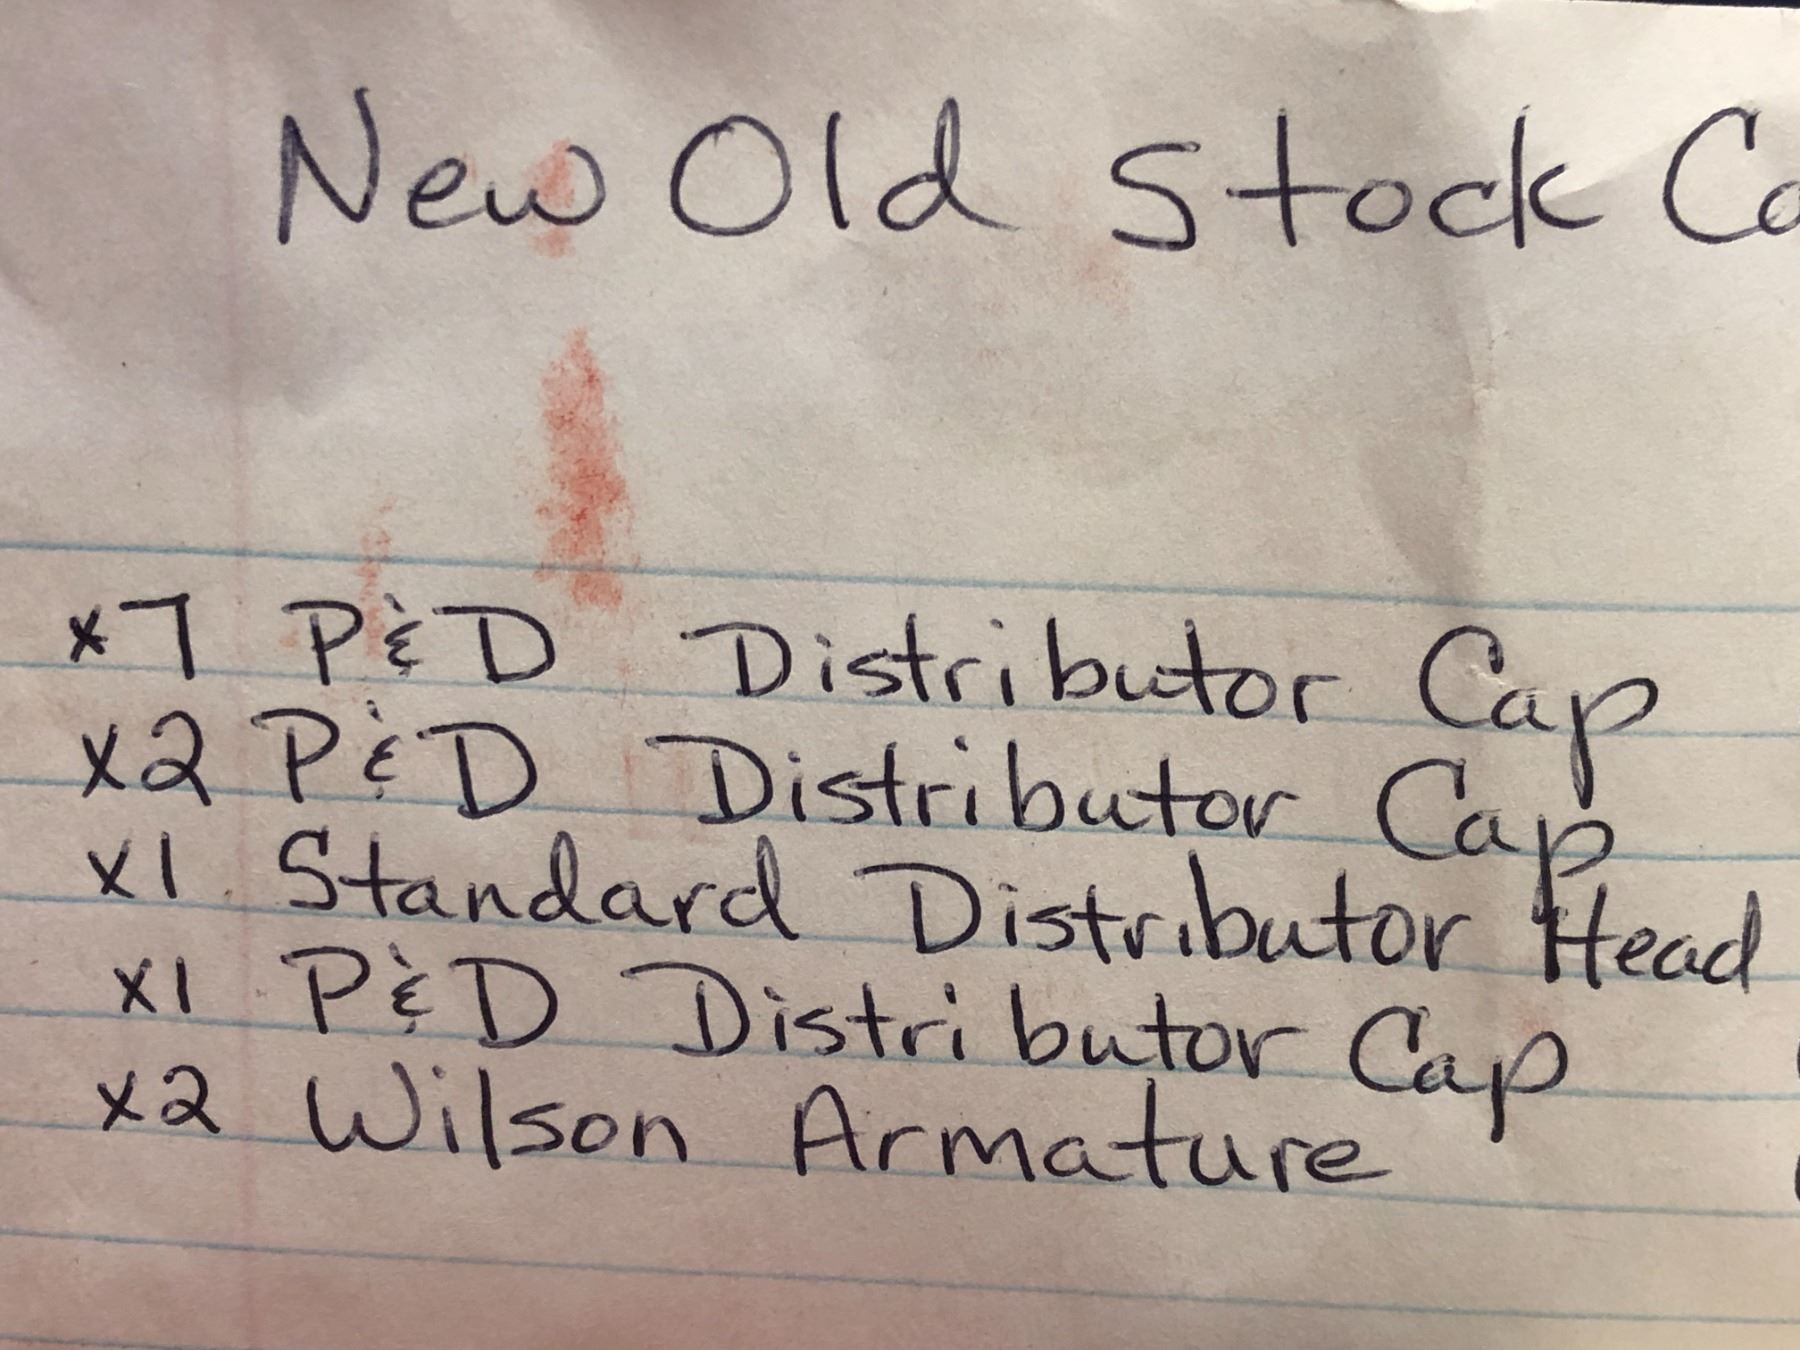 New Old Stock Co
x7 P&D Distributor Cap
x2 P&D Distributor Cap
x1 Standard Distributor Head
x1 P&D Distributor Cap
x2 Wilson Armature